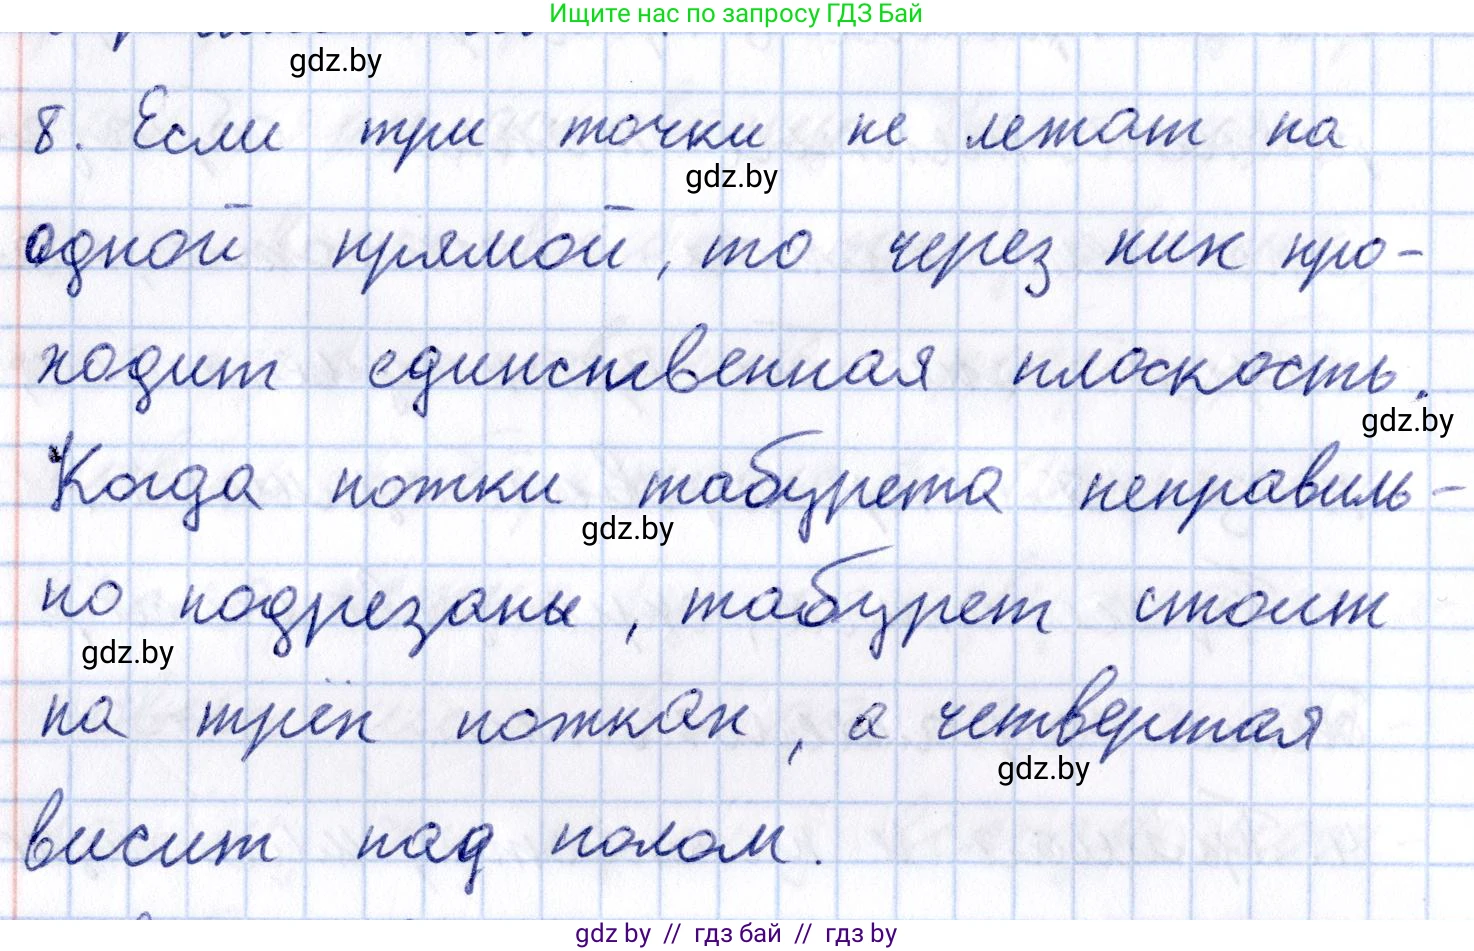 Ищите нас по запросу ГДЗ Бай
gdz.by
8. Если три точки не лежат на
gdz.by
одной прямой, то через них про-
ходит единственная плоскость.
gdz.by
Когда ножки табурета неправиль-
gdz.by
но подрезаны, табурет стоит
gdz.by
на трёх ножках, а четвертая
gdz.by
висит над полом.
gdz by // гдз бай // гдз by